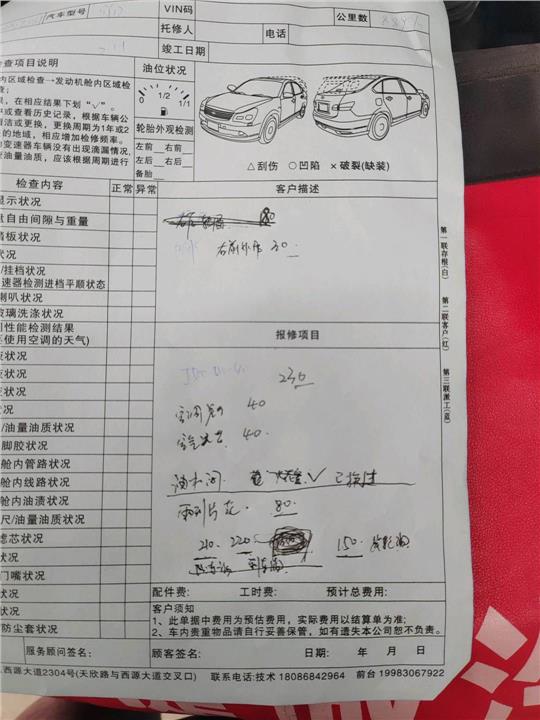 汽车型号
VIN码
公里数
托修人
电话
竣工日期
检查项目说明
油位状况
内区域检查→发动机舱内区域检
查；
，在相应结果下划“√”。
或查看历史记录，根据车辆公
洁或更换，更换周期为1年或2
的地域，相应增加检修频率。
变速器车辆没有出现滴漏情况，
油量油质，应该根据周期进行
0 1/2 1/1
轮胎外观检测
左前 右前
左后 右后
备胎
△刮伤 ○凹陷 ×破裂(缺装)
检查内容 正常 异常
客户描述
显示状况
盘自由间隙与重量
踏板状况
状况
/挂档状况
速器检测进档平顺状态
喇叭状况
玻璃洗涤状况
性能检测结果
使用空调的天气)
液状况
状况
状况
状况
/油量油质状况
脚胶状况
舱内管路状况
舱内线路状况
舱内油渍状况
尺/油量油质状况
滤芯状况
状况
门嘴状况
状况
状况
防尘套状况
80
30
报修项目
230
空调 40
空气 40
已换过
雨刮片 80
210 220 150
配件费: 工时费: 预计总费用:
客户须知
1、此单据中费用为预估费用，实际费用以结算单为准;
2、车内贵重物品请自行妥善保管，如有遗失本公司恕不负责。
服务顾问签名: 顾客签名: 日期: 年 月 日
西源大道2304号(天欣路与西源大道交叉口) 联系电话:技术 18086842964 前台 19983067922
第一联存根(白)
第二联客户(红)
第三联派工(蓝)